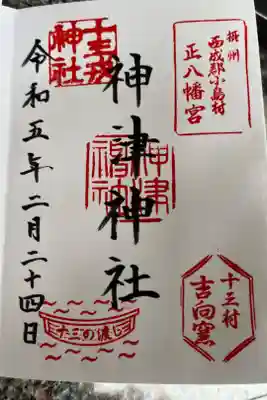 摂州
西成郡小島村
正八幡宮
十三戎
神社
神津神社
神津
令和五年二月二十四日
十三村
吉向窯
十三の渡し